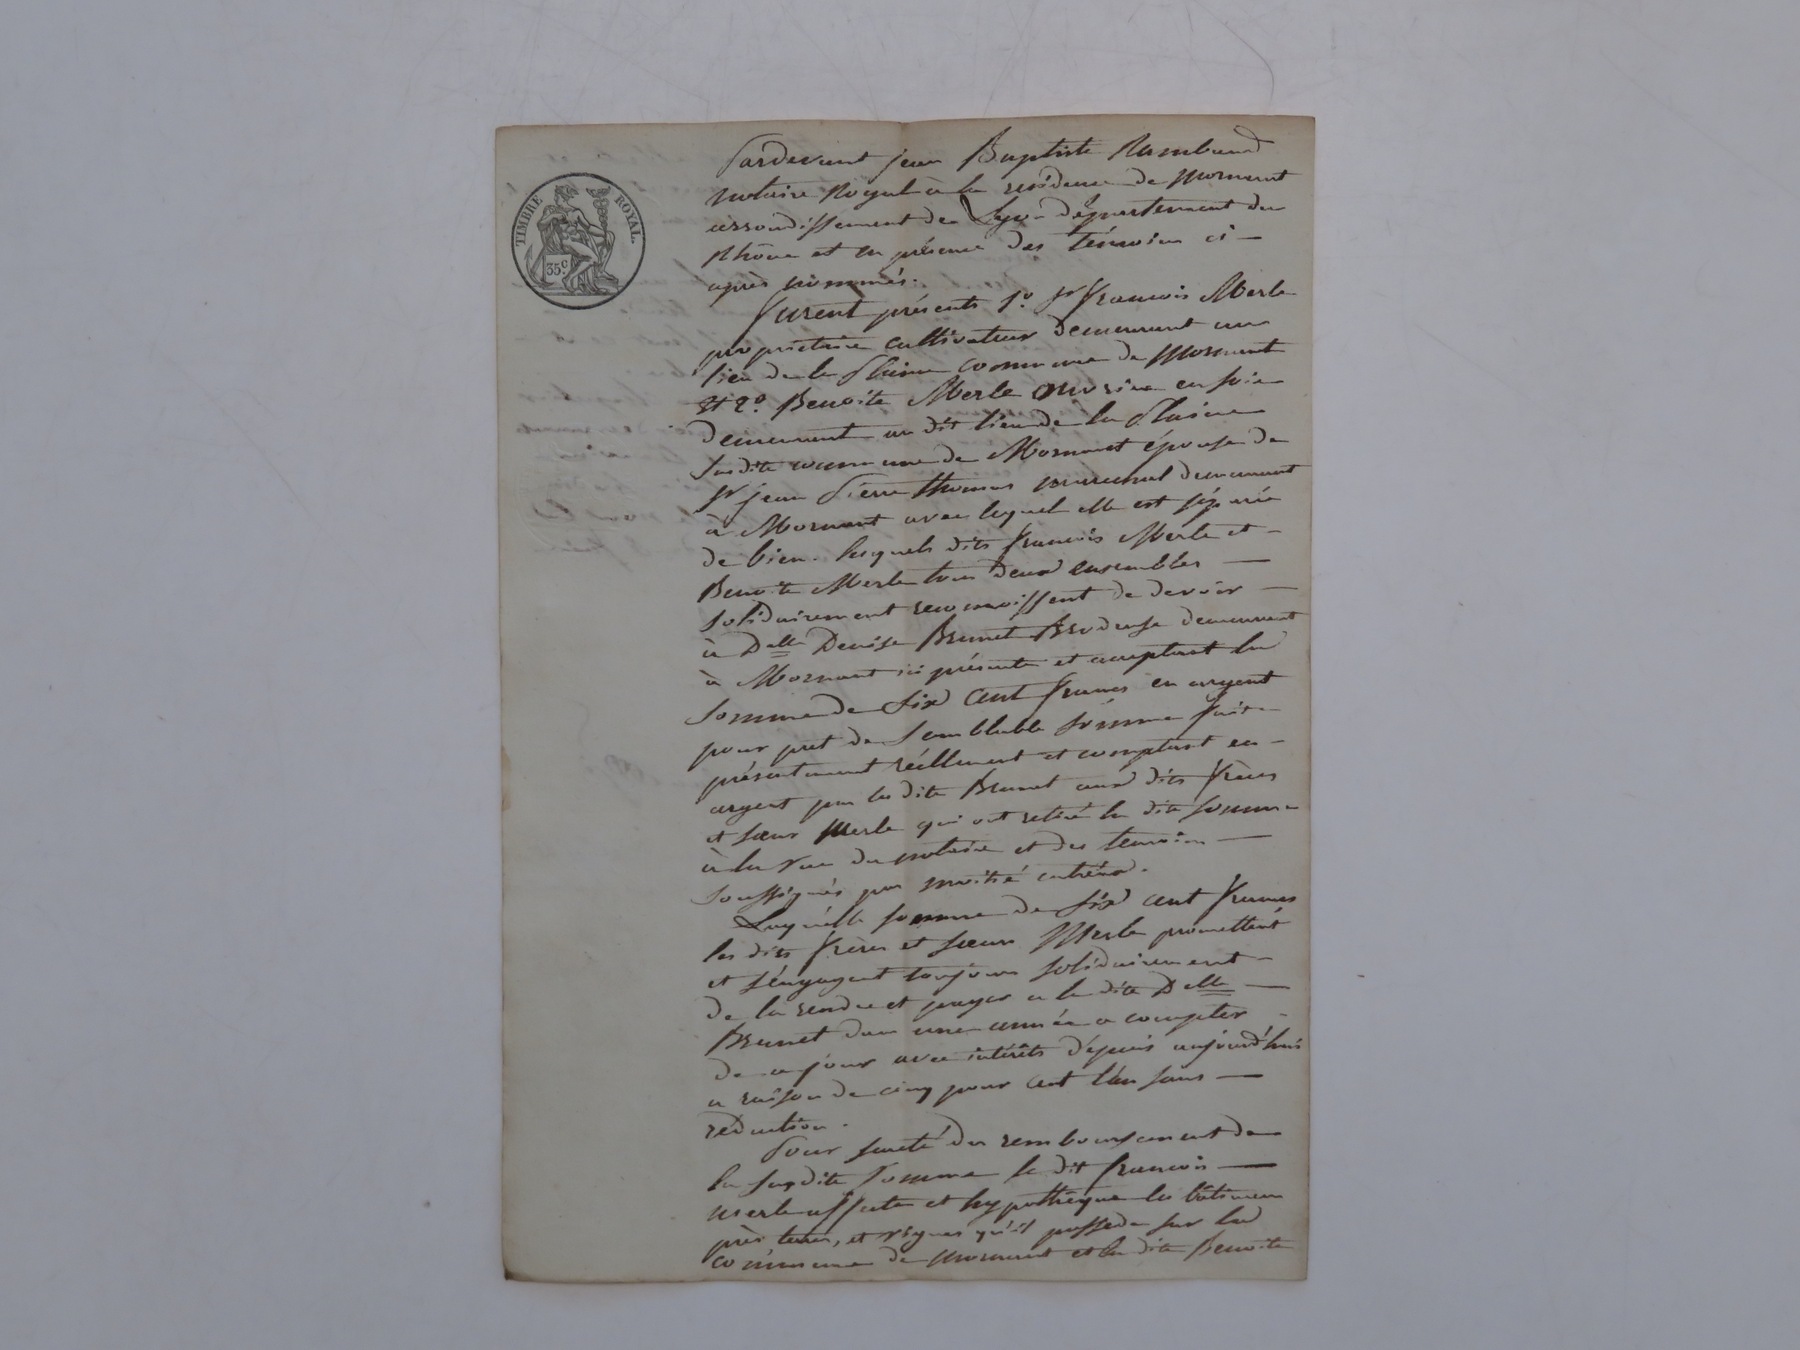 TIMBRE ROYAL.
35c.
Pardevant jean Baptiste Rambaud
notaire Royal à la residence de Mornant
arrondissement de Lyon département du
Rhône et en présence des témoins ci –
après nommés.
furent présents 1o. Sr francois Merle
propriétaire cultivateur demeurant au
lieu de la Plaine commune de Mornant
Et 2o. Benoite Merle ouvrière en soie
demeurant au dit lieu de la Plaine
susdite commune de Mornant épouse de
Sr jean Pierre thomas marechal demeurant
à Mornant avec lequel elle est séparée
de bien. lesquels dits francois Merle et –
Benoite Merle tous deux ensembles —
solidairement reconnoissent de devoir —
à Delle Denise Brunet Brodeuse demeurant
à Mornant ici présente et acceptant la
somme de six cent francs en argent
pour pret de semblable somme fait
présentement réellement et comptant en –
argent par la dite Brunet aux dits frères
et sœur Merle qui ont retiré la dite somme
à la vue du notaire et des temoins —
soussignés par moitié entréux.
Laquélle somme de six cent francs
les dits frères et sœur Merle promettent
et s'éngagent toujours solidairement –
de la rendre et payer a la dite Delle —
Brunet dans une année a compter –
de ce jour avec intérêts dépuis aujourd'hui
a raison de cinq pour cent l'an sans —
réduction.
Pour sureté du remboursement de
la susdite somme le dit francois —
Merle affecte et hypothèque les bâtimens
près terres, et vignes qu'il possede sur la
commune de Mornant et la dite Benoite